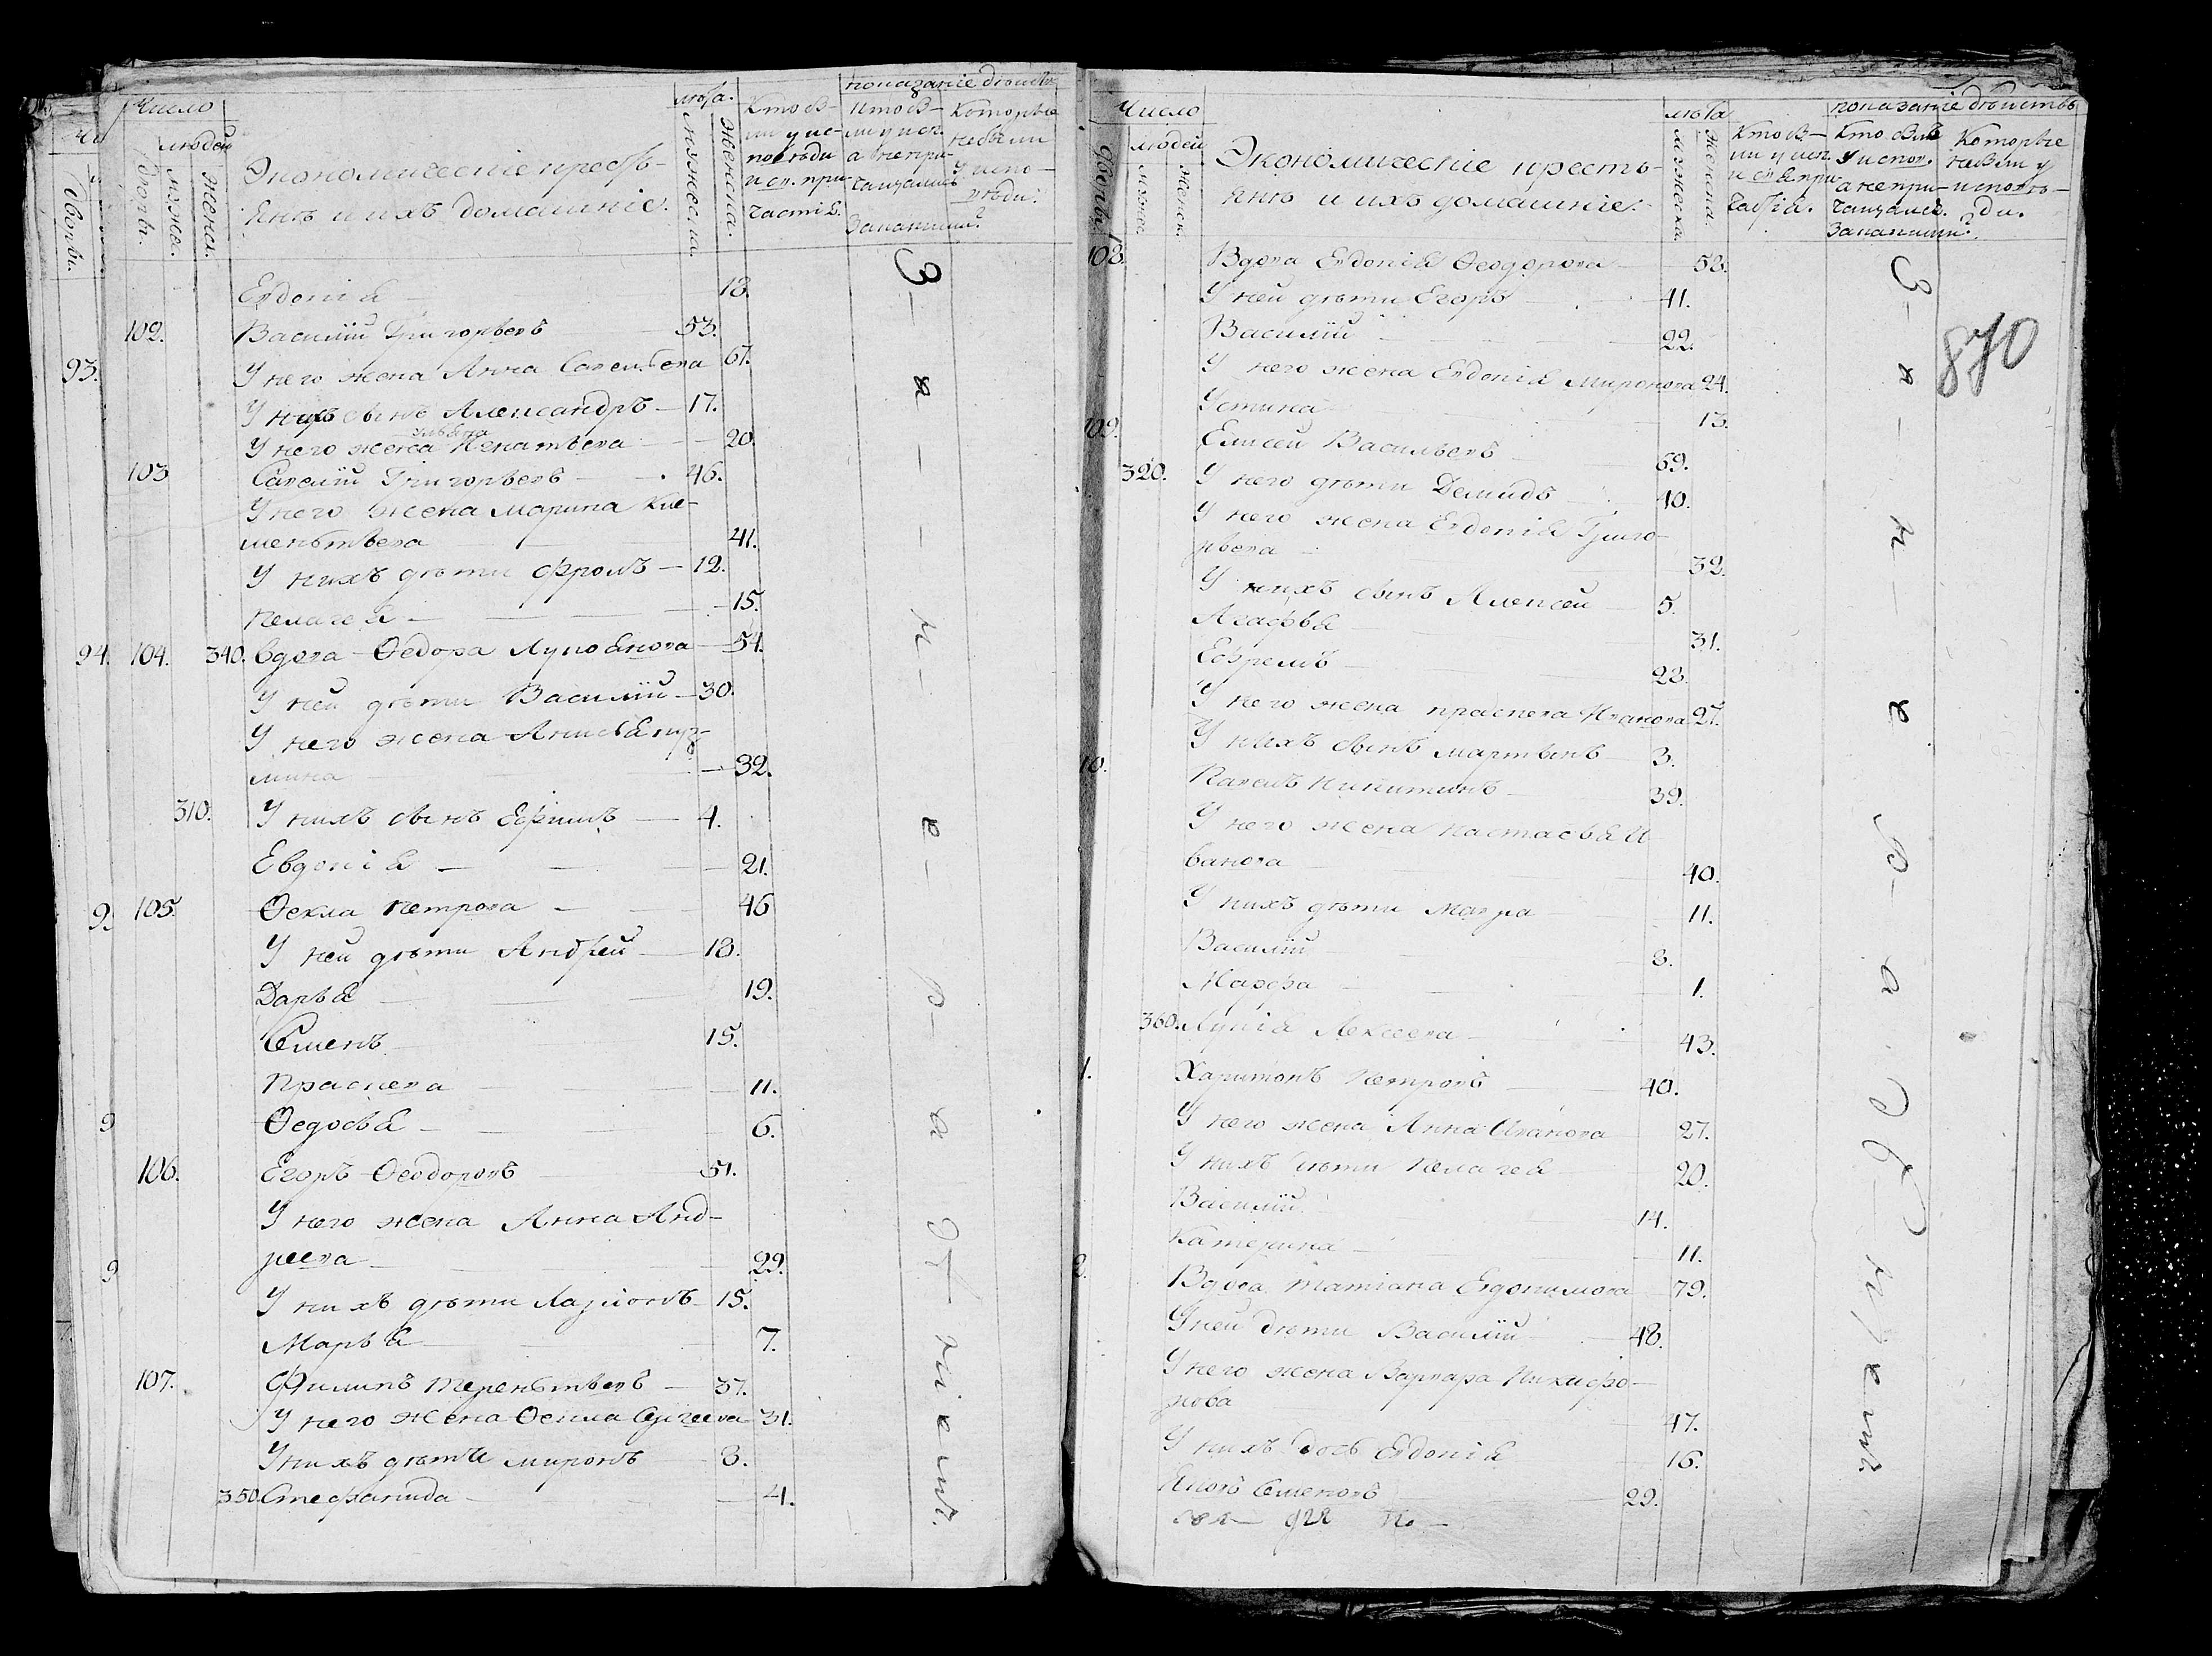 Число
людей
дворы.
мужес.
женск.
Экономическіе кресть-
яне и ихъ домашніе.
лѣта.
мужеска
женска.
показаніе дѣйств
Кто бы-
ли у ис-
повѣди
и св. при-
частія.
Кто бы-
ли у исп.
а не при-
чащались
Которые
не были
у испо-
вѣди.
За какимъ
Евдокія 18.
102. Василій Григорьевъ 53.
93. У него жена Анна Савельева 67.
У нихъ сынъ Александръ 17.
ульяна
У него жена Игнатьева 20.
103 Савелій Григорьевъ 46.
У него жена Марина Кле-
ментьева 41.
У нихъ дѣти Фролъ 12.
Пелагея 15.
94. 104. 340. Вдова Ѳедора Лупоянова 54.
У ней дѣти Василій 30.
У него жена Анисья Кузь-
мина 32.
310. У нихъ сынъ Ефимъ 4.
Евдокія 21.
9 105. Ѳекла Петрова 46
У ней дѣти Андрей 18.
Дарья 19.
Семенъ 15.
Прасковa 11.
9 Ѳедосья 6.
106. Егоръ Ѳеодоровъ 51.
У него жена Анна Анд-
реева 29.
9
У нихъ дѣти Ларіонъ 15.
Марья 7.
107. Филипъ Терентьевъ 37.
У него жена Ѳекла Сергеева 31.
У нихъ дѣти Миронъ 3.
350. Стефанида 4.
За-не-ра-дѣ-ніемъ.
Число
дворы
людей
мужес.
женск.
Экономическіе кресть-
яне и ихъ домашніе.
лѣта
мужеска.
женска.
показаніе дѣйствъ
Кто бы-
ли у исп.
и св. при-
частія.
Кто были
у испов.
а не при-
чащались.
Которые
не были у
исповѣ-
ди.
За какимъ
870
108. Вдова Евдокія Ѳеодорова 58.
У ней дѣти Егоръ 41.
Василій 22.
У него жена Евдокія Миронова 24.
Устина 13.
109. Елисей Васильевъ 69.
320. У него дѣти Демидъ 40.
У него жена Евдокія Григо-
рьева 32.
У нихъ сынъ Алексей 5.
Агафья 31.
Ефремъ 28.
У него жена Прасковa Иванова 27.
У нихъ сынъ Мартынъ 3.
10. Павелъ Никитинъ 39.
У него жена Настасья И
ванова 40.
У нихъ дѣти Мавра 11.
Василій 8.
Марфа 1.
360. Лукія Алексеева 43.
1. Харитонъ Петровъ 40.
У него жена Анна Иванова 27.
У нихъ дѣти Пелагея 20.
Василій 14.
Катерина 11.
2. Вдова Татіана Евдокимова 79.
У ней дѣти Василій 48.
У него жена Варвара Никифо-
рова 47.
У нихъ дочь Евдокія 16.
Яковъ Семеновъ 29.
За-не-ра-дѣ-ніемъ